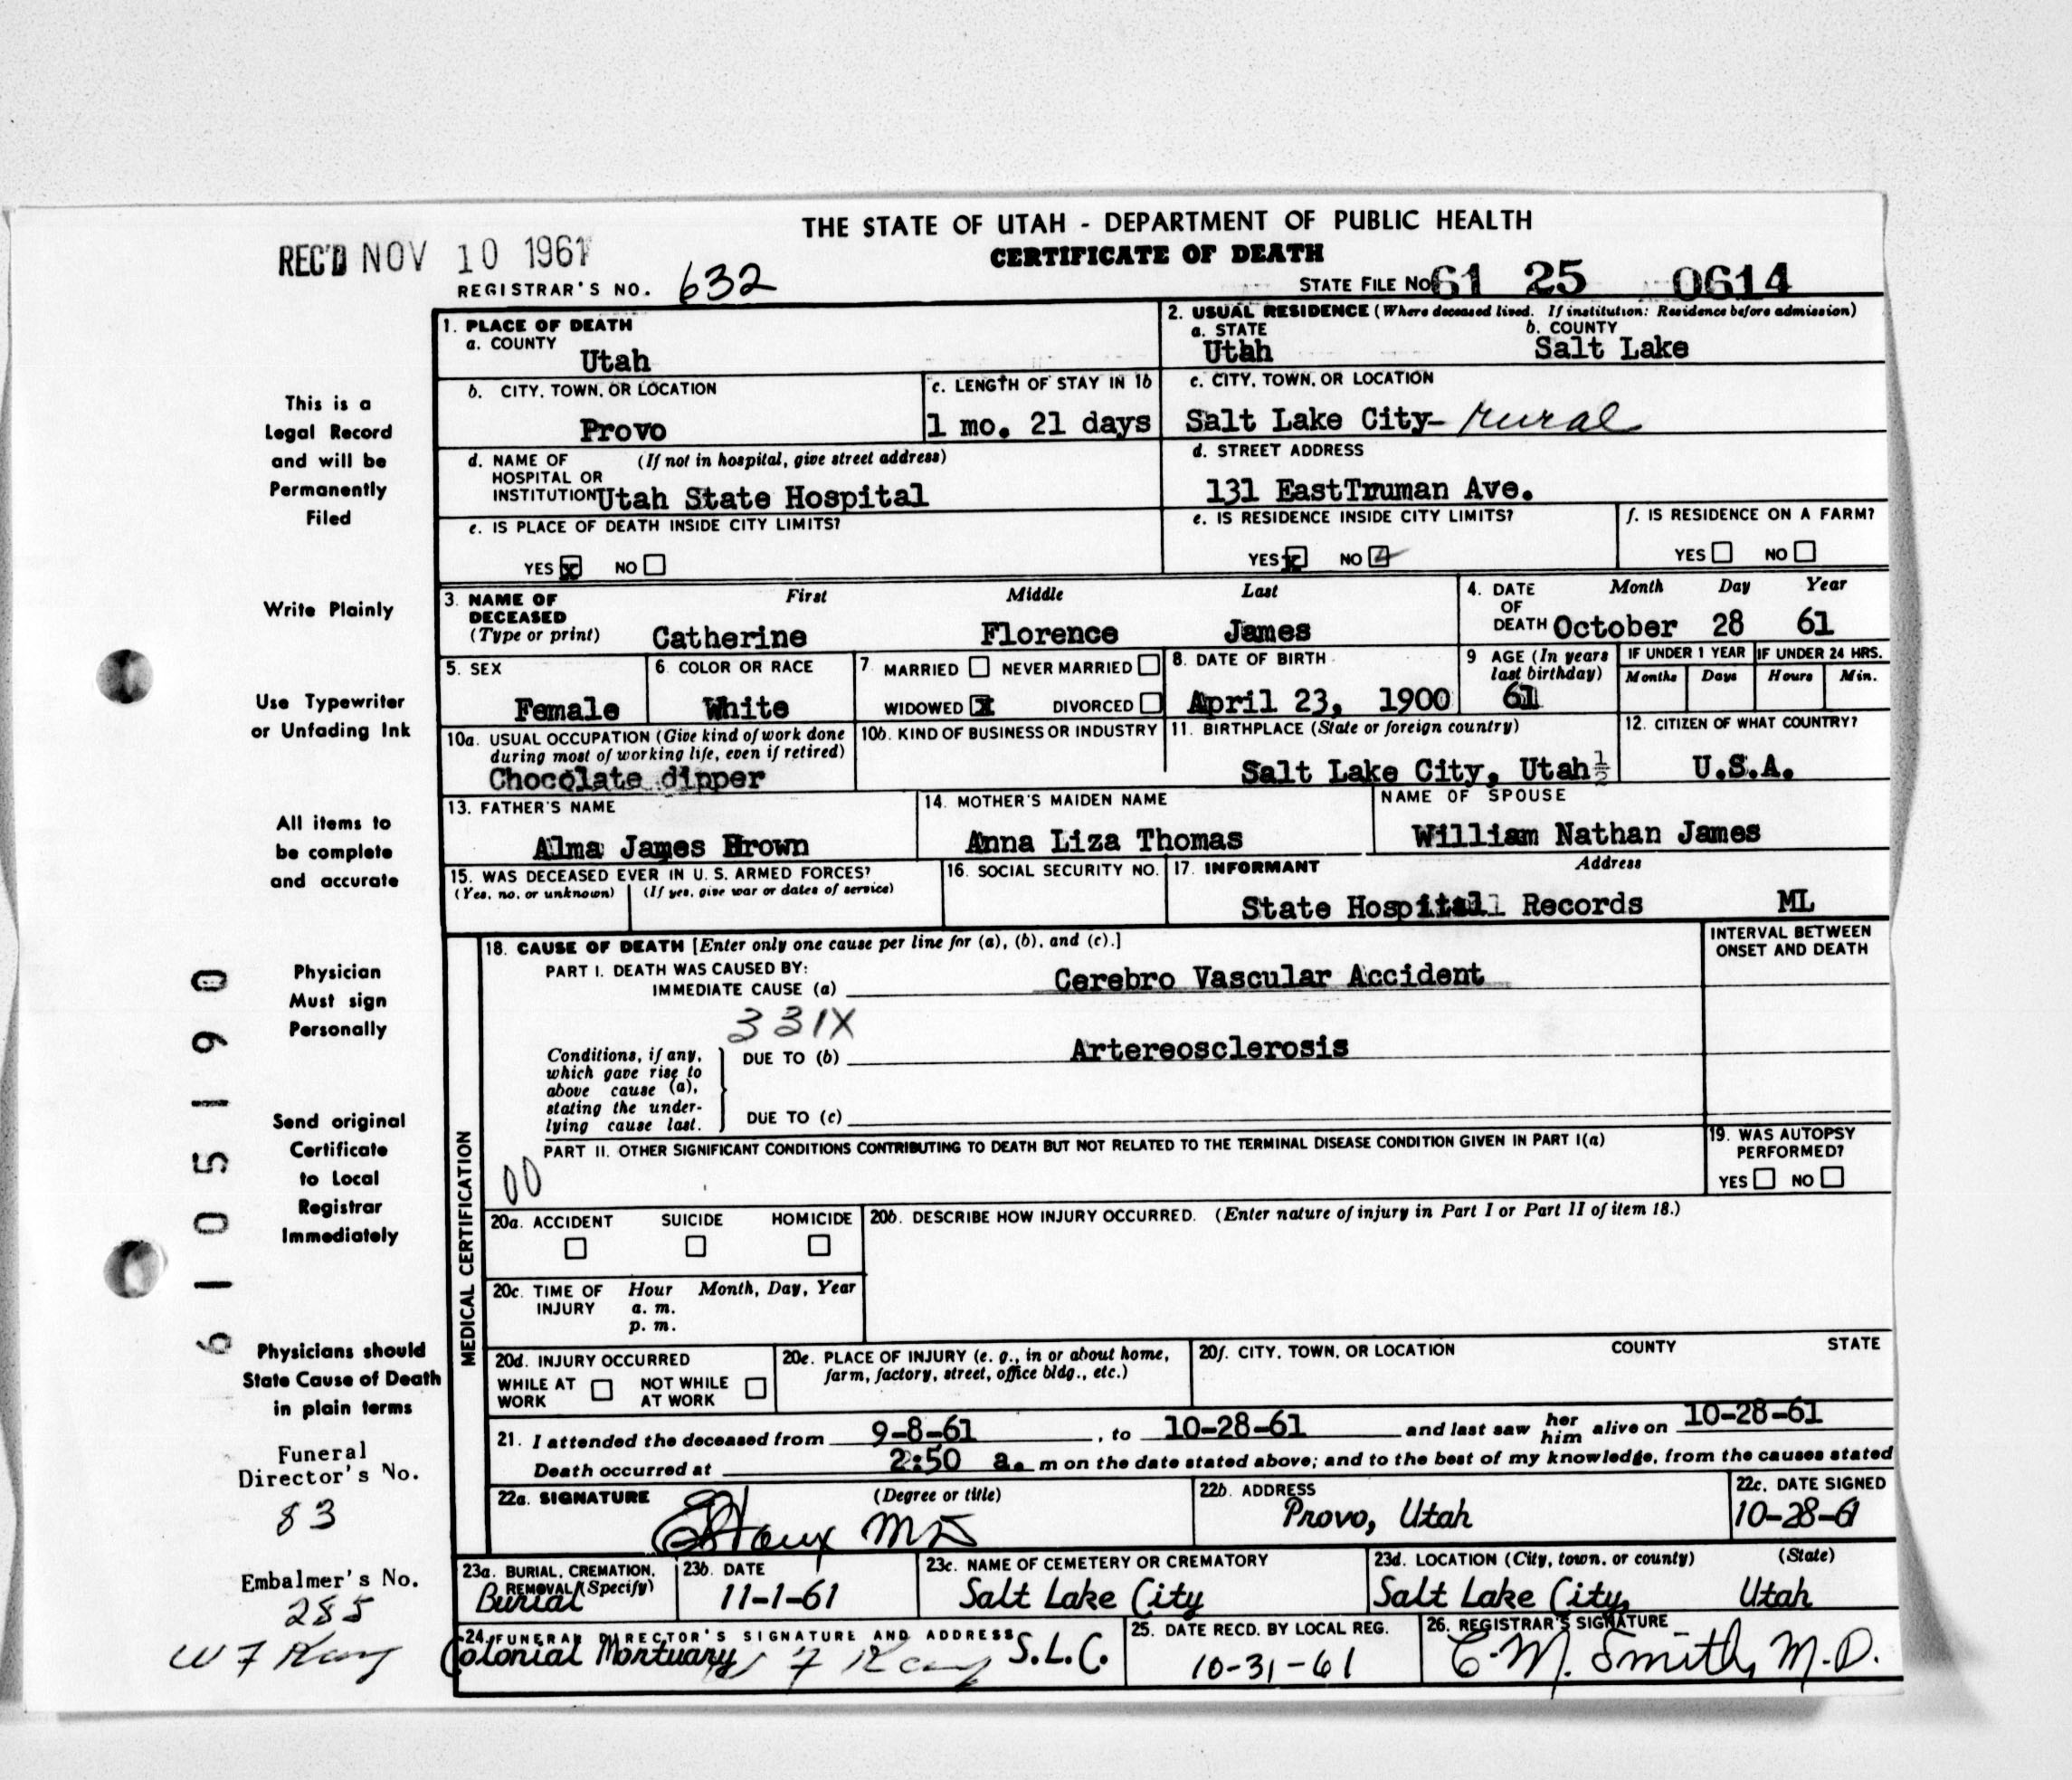 THE STATE OF UTAH - DEPARTMENT OF PUBLIC HEALTH
REC'D NOV 10 1961
CERTIFICATE OF DEATH
REGISTRAR'S NO. 632
STATE FILE NO. 61 25 0614
1. PLACE OF DEATH
a. COUNTY
Utah
2. USUAL RESIDENCE (Where deceased lived. If institution: Residence before admission)
a. STATE b. COUNTY
Utah Salt Lake
b. CITY, TOWN, OR LOCATION
Provo
c. LENGTH OF STAY IN 1b
1 mo. 21 days
c. CITY, TOWN, OR LOCATION
Salt Lake City- rural
d. NAME OF (If not in hospital, give street address)
HOSPITAL OR
INSTITUTION Utah State Hospital
d. STREET ADDRESS
131 EastTruman Ave.
e. IS PLACE OF DEATH INSIDE CITY LIMITS?
YES x NO
e. IS RESIDENCE INSIDE CITY LIMITS?
YES x NO
f. IS RESIDENCE ON A FARM?
YES NO
3. NAME OF First Middle Last
DECEASED
(Type or print) Catherine Florence James
4. DATE Month Day Year
OF
DEATH October 28 61
5. SEX
Female
6. COLOR OR RACE
White
7. MARRIED NEVER MARRIED
WIDOWED X DIVORCED
8. DATE OF BIRTH
April 23, 1900
9 AGE (In years
last birthday)
61
IF UNDER 1 YEAR IF UNDER 24 HRS.
Months Days Hours Min.
10a. USUAL OCCUPATION (Give kind of work done
during most of working life, even if retired)
Chocolate dipper
10b. KIND OF BUSINESS OR INDUSTRY
11. BIRTHPLACE (State or foreign country)
Salt Lake City, Utah½
12. CITIZEN OF WHAT COUNTRY?
U.S.A.
13. FATHER'S NAME
Alma James Brown
14. MOTHER'S MAIDEN NAME
Anna Liza Thomas
NAME OF SPOUSE
William Nathan James
15. WAS DECEASED EVER IN U. S. ARMED FORCES?
(Yes, no, or unknown) (If yes, give war or dates of service)
16. SOCIAL SECURITY NO.
17. INFORMANT Address
State Hospital Records ML
MEDICAL CERTIFICATION
18. CAUSE OF DEATH [Enter only one cause per line for (a), (b), and (c).]
INTERVAL BETWEEN
ONSET AND DEATH
PART I. DEATH WAS CAUSED BY:
IMMEDIATE CAUSE (a) Cerebro Vascular Accident
331X
Conditions, if any,
which gave rise to
above cause (a),
stating the under-
lying cause last.
DUE TO (b) Artereosclerosis
DUE TO (c)
PART II. OTHER SIGNIFICANT CONDITIONS CONTRIBUTING TO DEATH BUT NOT RELATED TO THE TERMINAL DISEASE CONDITION GIVEN IN PART I(a)
00
19. WAS AUTOPSY
PERFORMED?
YES NO
20a. ACCIDENT SUICIDE HOMICIDE
20b. DESCRIBE HOW INJURY OCCURRED. (Enter nature of injury in Part I or Part II of item 18.)
20c. TIME OF Hour Month, Day, Year
INJURY a. m.
p. m.
20d. INJURY OCCURRED
WHILE AT NOT WHILE
WORK AT WORK
20e. PLACE OF INJURY (e. g., in or about home,
farm, factory, street, office bldg., etc.)
20f. CITY, TOWN, OR LOCATION COUNTY STATE
21. I attended the deceased from 9-8-61, to 10-28-61 and last saw her him alive on 10-28-61
Death occurred at 2:50 a. m on the date stated above; and to the best of my knowledge, from the causes stated
22a. SIGNATURE (Degree or title)
MD
22b. ADDRESS
Provo, Utah
22c. DATE SIGNED
10-28-61
23a. BURIAL, CREMATION,
REMOVAL (Specify)
Burial
23b. DATE
11-1-61
23c. NAME OF CEMETERY OR CREMATORY
Salt Lake City
23d. LOCATION (City, town, or county) (State)
Salt Lake City, Utah
24. FUNERAL DIRECTOR'S SIGNATURE AND ADDRESS
Colonial Mortuary W F Kay S.L.C.
25. DATE RECD. BY LOCAL REG.
10-31-61
26. REGISTRAR'S SIGNATURE
C. M. Smith, M.D.
This is a
Legal Record
and will be
Permanently
Filed
Write Plainly
Use Typewriter
or Unfading Ink
All items to
be complete
and accurate
Physician
Must sign
Personally
Send original
Certificate
to Local
Registrar
Immediately
Physicians should
State Cause of Death
in plain terms
Funeral
Director's No.
83
Embalmer's No.
285
W F Kay
6105190